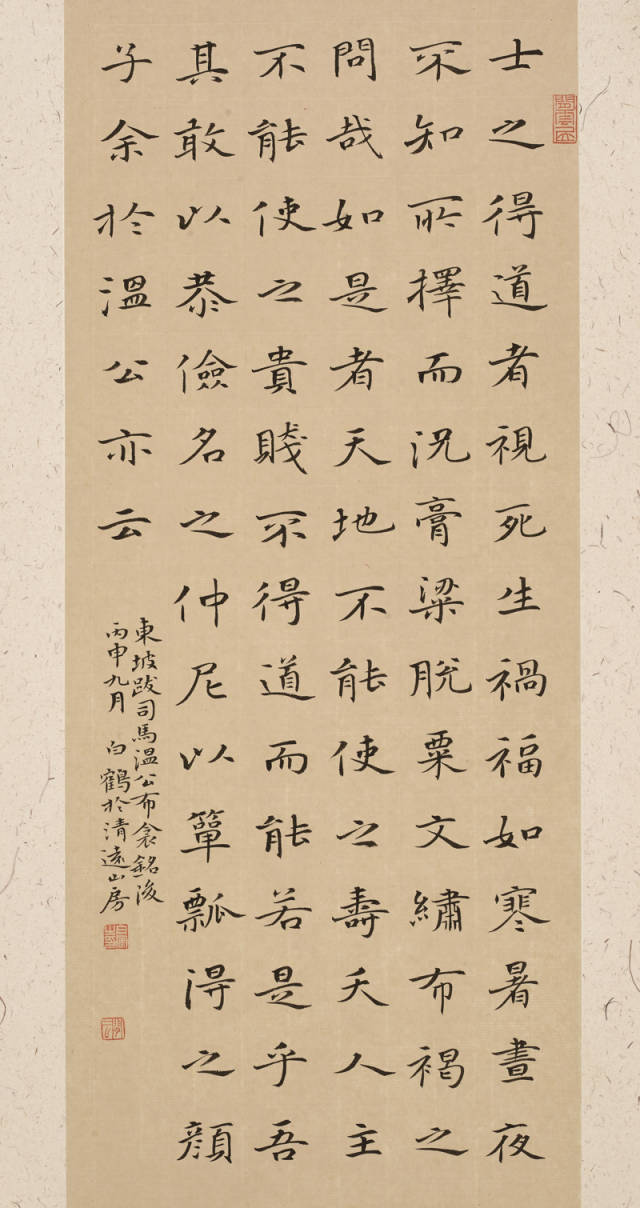 士之得道者視死生禍福如寒暑晝夜
不知所擇而況膏粱脫粟文繡布褐之
問哉如是者天地不能使之壽夭人主
不能使之貴賤不得道而能若是乎吾
其敢以恭儉名之仲尼以簞瓢得之顏
子余於溫公亦云
東坡跋司馬溫公布衾銘後
丙申九月 白鶴於清遠山房